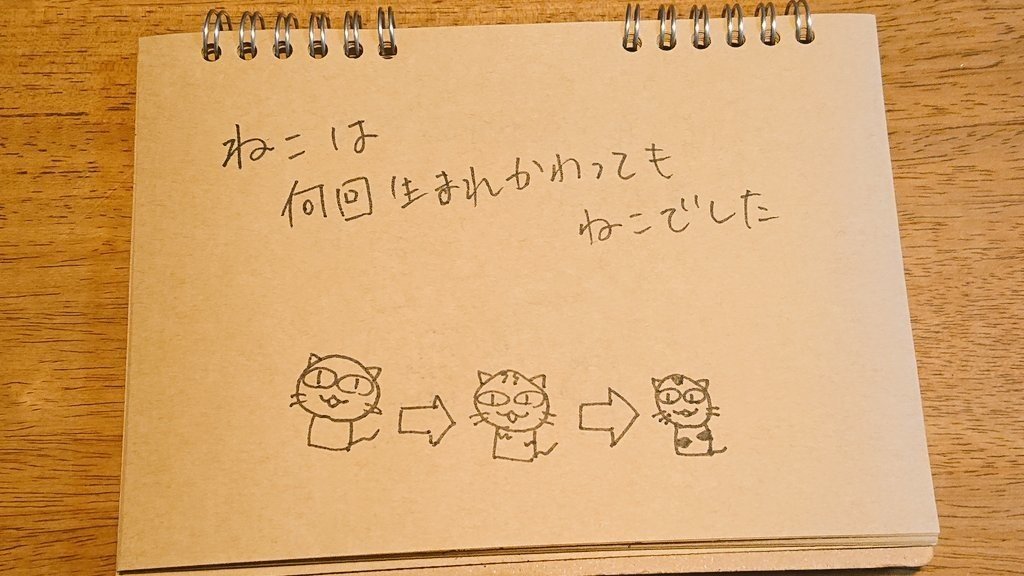 ねこは
何回生まれかわっても
ねこでした